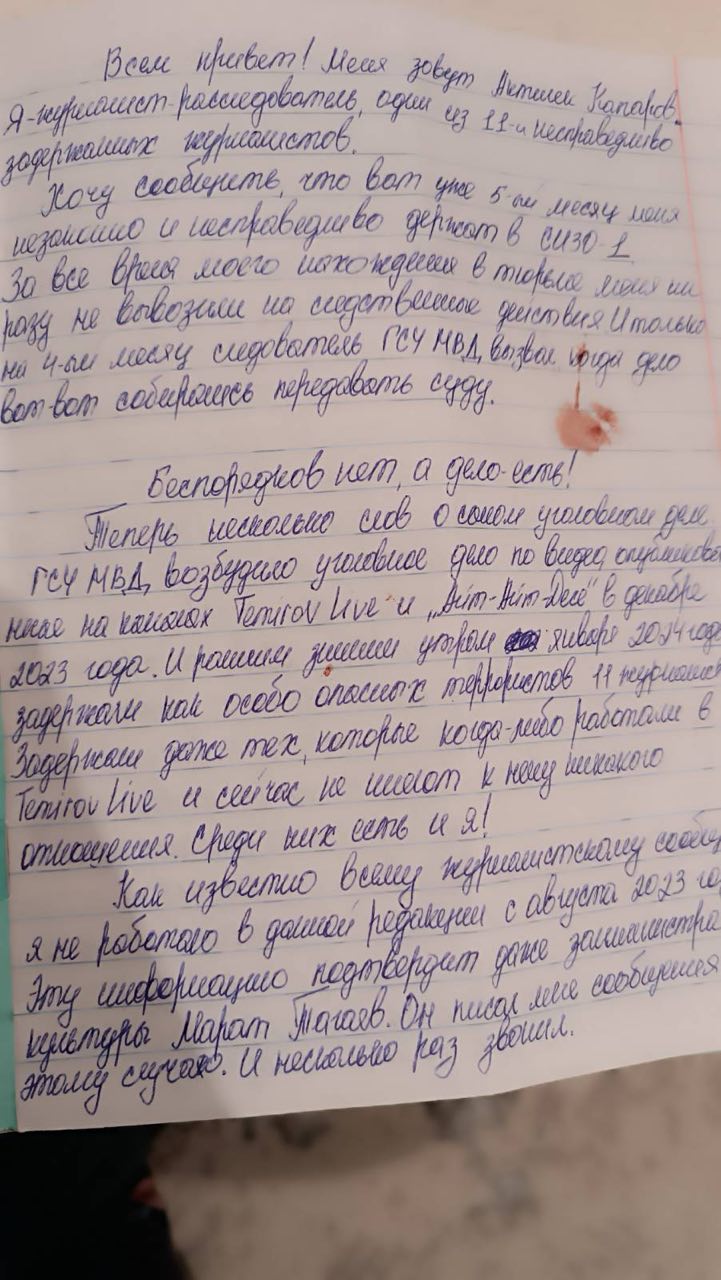 Всем привет! Меня зовут Актилек Капаров.
Я-журналист-расследователь, один из 11-и несправедливо
задержанных журналистов.
Хочу сообщить, что вот уже 5-ый месяц меня
незаконно и несправедливо держат в СИЗО-1
За все время моего нахождения в тюрьме меня ни
разу не вывозили на следственные действия И только
на 4-ый месяц следователь ГСУ МВД вызвал когда дело
вот-вот собирались передавать суду.
Беспорядков нет, а дело-есть!
Теперь несколько слов о самом уголовном деле
ГСУ МВД, возбудило уголовное дело по видео, опубликова
нные на каналах Temirov Live и „Ait-Ait-Dese" в декабре
2023 года. И ранним зимним утром января 2024 года
задержали как особо опасных террористов 11 журналис
Задержали даже тех, которые когда-либо работали в
Temirov Live и сейчас не имеют к нему никакого
отношения. Среди них есть и я!
Как известно всему журналистскому сообщ
я не работаю в данной редакции с августа 2023 го
Эту информацию подтвердит даже замминистра
культуры Марат Тагаев. Он писал мне сообщения
этому случаю. И несколько раз звонил.